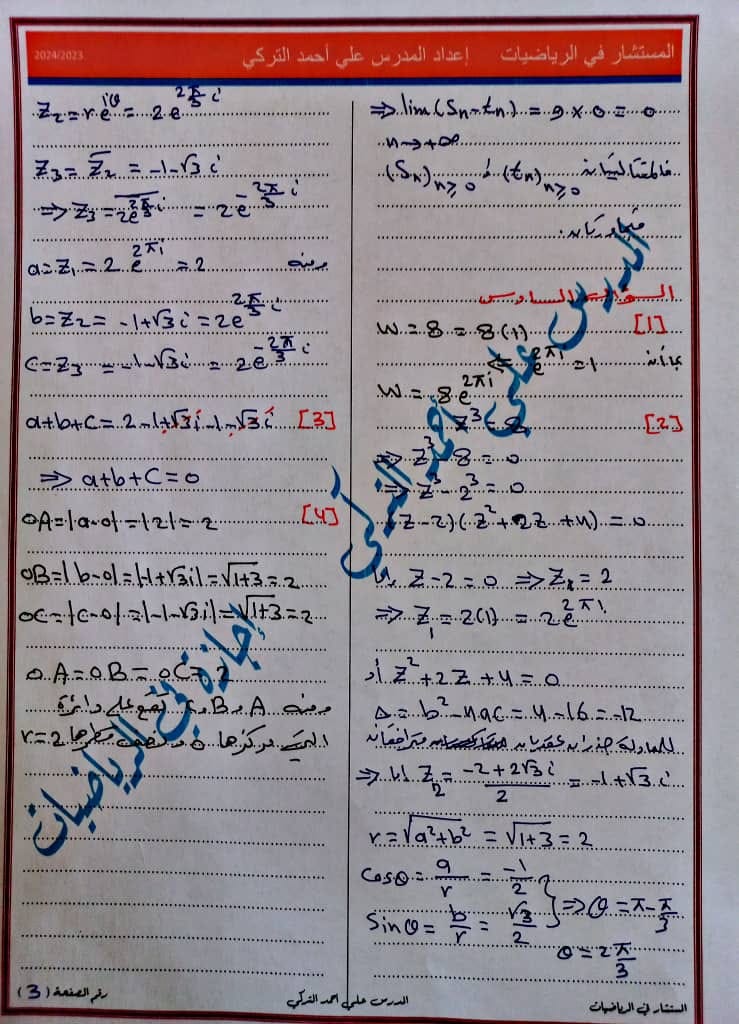 المستشار في الرياضيات إعداد المدرس علي أحمد التركي 2024/2023
⇒ lim (Sn - tn) = 9 × 0 = 0
n → +∞
فالمتتاليتان (tn) n≥0 و (Sn) n≥0
متجاورتان.
السؤال السادس
[1] W = 8 = 8(1)
بما أن e^{2πi} = 1 ⇒
W = 8e^{2πi}
[2] z³ = 8
⇒ z³ - 8 = 0
⇒ z³ - 2³ = 0
(z - 2)(z² + 2z + 4) = 0
إما z - 2 = 0 ⇒ z₁ = 2
⇒ z₁ = 2(1) = 2e^{2πi}
أو z² + 2z + 4 = 0
Δ = b² - 4ac = 4 - 16 = -12
للمعادلة جذران عقديان مترافقان
⇒ إما z₂ = (-2 + 2√3 i)/2 = -1 + √3 i
r = √(a² + b²) = √(1+3) = 2
cosθ = a/r = -1/2
sinθ = b/r = √3/2
⇒ θ = π - π/3
θ = 2π/3
z₂ = re^{iθ} = 2e^{2π/3 i}
z₃ = z̅₂ = -1 - √3 i
⇒ z₃ = \overline{2e^{2π/3 i}} = 2e^{-2π/3 i}
ومنه a = z₁ = 2e^{2πi} = 2
b = z₂ = -1 + √3 i = 2e^{2π/3 i}
c = z₃ = -1 - √3 i = 2e^{-2π/3 i}
[3] a + b + c = 2 - 1 + √3 i - 1 - √3 i
⇒ a + b + c = 0
[4] OA = |a - 0| = |2| = 2
OB = |b - 0| = |-1 + √3 i| = √(1+3) = 2
OC = |c - 0| = |-1 - √3 i| = √(1+3) = 2
OA = OB = OC = 2
ومنه A و B و C تقع على دائرة
التي مركزها O ونصف قطرها r = 2
المدرس علي أحمد التركي
إجازة في الرياضيات
المستشار في الرياضيات المدرس علي احمد التركي رقم الصفحة (3)